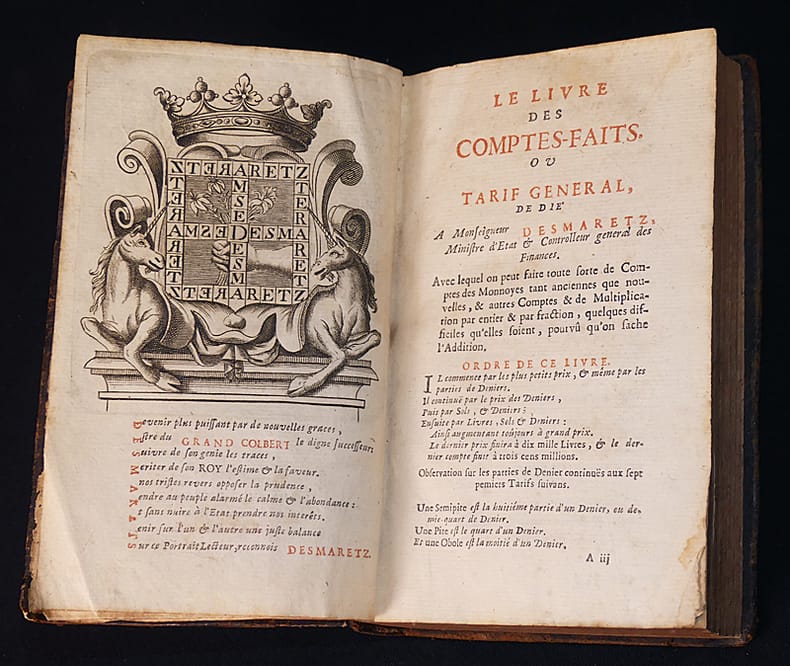 ZTERARETZ
TERAMSEDESMARET
ZTERAMARETZ
Devenir plus puiſſant par de nouvelles graces,
Eſtre du GRAND COLBERT le digne ſucceſſeur:
Suivre de ſon genie les traces,
Meriter de ſon ROY l'eſtime & la faveur.
A nos triſtes revers oppoſer la prudence,
Rendre au peuple alarmé le calme & l'abondance:
Et sans nuire à l'Etat prendre nos interêts.
Tenir ſur l'un & l'autre une juſte balance
Sur ce Portrait Lecteur, reconnois DESMARETZ.
LE LIVRE
DES
COMPTES-FAITS.
OU
TARIF GENERAL,
DEDIÉ
A Monſeigneur DESMARETZ,
Miniſtre d'Etat & Controlleur general des
Finances.
Avec lequel on peut faire toute ſorte de Com-
ptes des Monnoyes tant anciennes que nou-
velles, & autres Comptes & de Multiplica-
tion par entier & par fraction, quelques dif-
ficiles qu'elles ſoient, pourvû qu'on ſache
l'Addition.
ORDRE DE CE LIVRE.
IL commence par les plus petits prix, & même par les
parties de Deniers.
Il continuë par le prix des Deniers,
Puis par Sols, & Deniers;
Enſuite par Livres, Sols & Deniers:
Ainſi augmentant toûjours à grand prix.
Le dernier prix finira à dix mille Livres, & le der-
nier compte finit à trois cens millions.
Obſervation ſur les parties de Denier continuës aux ſept
pemiers Tarifs ſuivans.
Une Semipite eſt la huitiéme partie d'un Denier, ou de-
mie-quart de Denier.
Une Pite eſt le quart d'un Denier.
Et une Obole eſt la moitié d'un Denier.
A iij